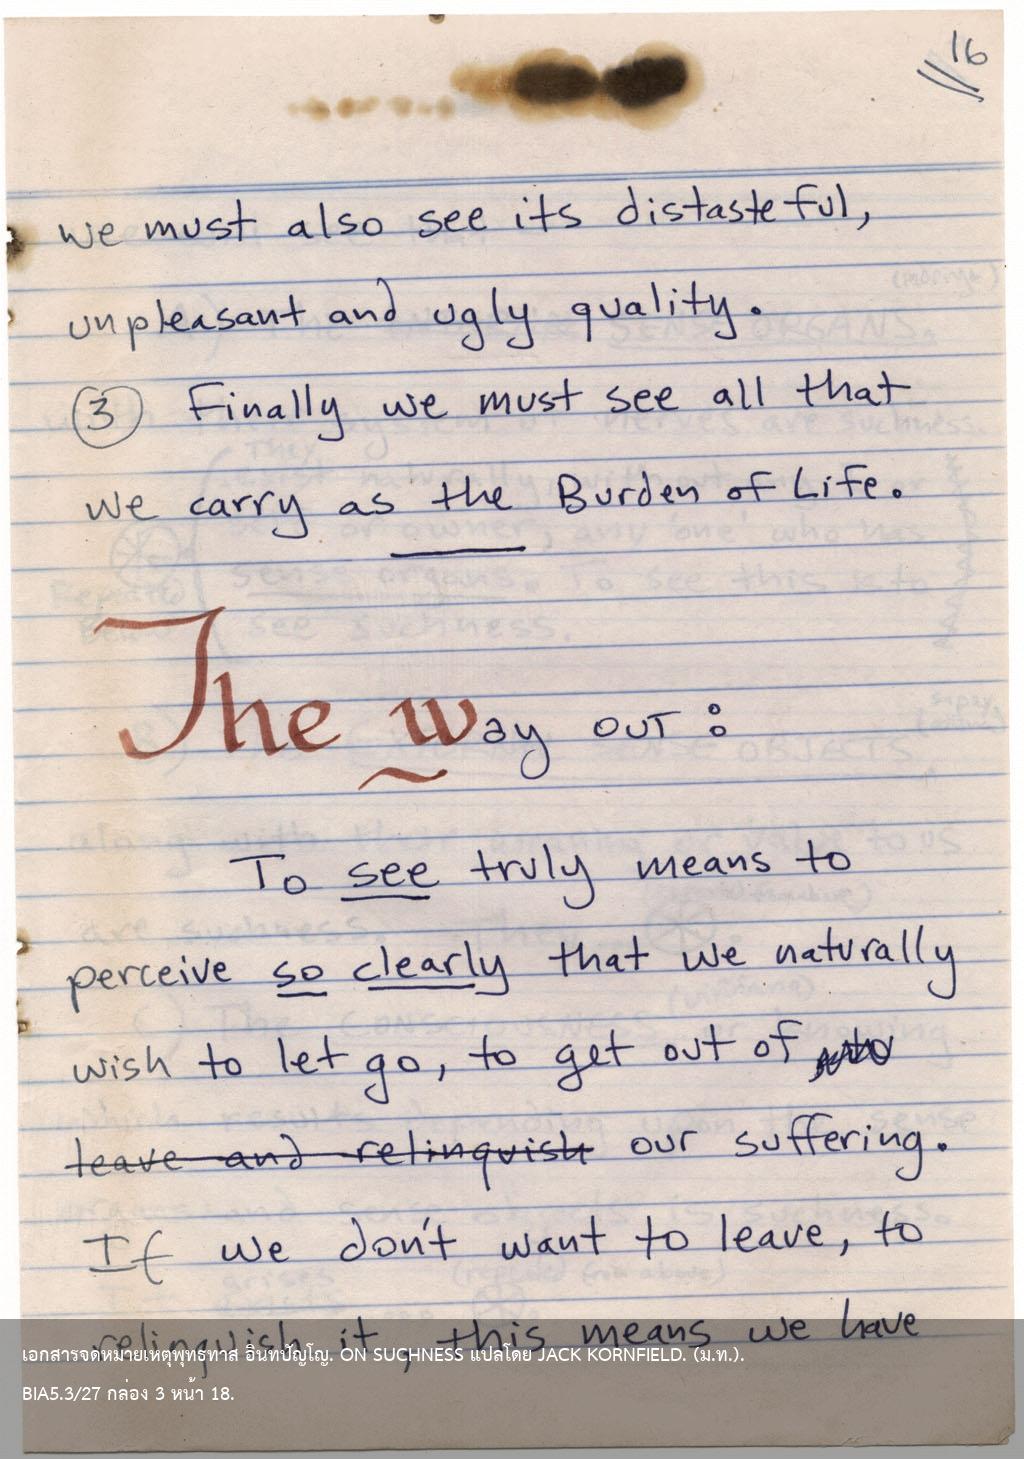 16
we must also see its distasteful,
unpleasant and ugly quality.
③ Finally we must see all that
we carry as the Burden of Life.
The way out:
To see truly means to
perceive so clearly that we naturally
wish to let go, to get out of
leave and relinquish our suffering.
If we don't want to leave, to
relinquish it, this means we have
เอกสารจดหมายเหตุพุทธทาส อินทปัญโญ. ON SUCHNESS แปลโดย JACK KORNFIELD. (ม.ท.).
BIA5.3/27 กล่อง 3 หน้า 18.